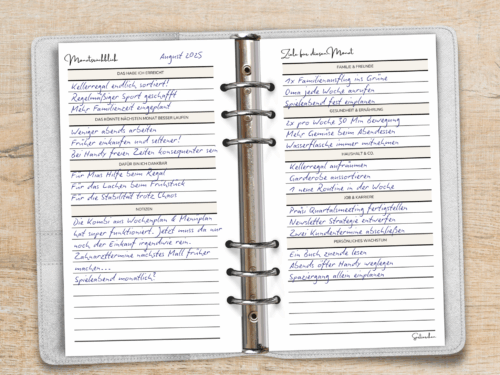 Monatsrückblick
August 2025
DAS HABE ICH ERREICHT
Kellerregal endlich sortiert!
Regelmäßiger Sport geschafft
Mehr Familienzeit eingeplant
DAS KÖNNTE NÄCHSTEN MONAT BESSER LAUFEN
Weniger abends arbeiten
Früher einkaufen und seltener!
Bei Handy freien Zeiten konsequenter sein
DAFÜR BIN ICH DANKBAR
Für Mias Hilfe beim Regal
Für das Lachen beim Frühstück
Für die Stabilität trotz Chaos
NOTIZEN
Die Kombi aus Wochenplan & Menüplan
hat super funktioniert. Jetzt muss da nur
noch der Einkauf irgendwie rein.
Zahnarzttermine nächstes Mall früher
machen...
Spieleabend monatlich!
Ziele für diesen Monat
FAMILIE & FREUNDE
1x Familienausflug ins Grüne
Oma jede Woche anrufen
Spieleabend fest einplanen
GESUNDHEIT & ERNÄHRUNG
2x pro Woche 30 Min Bewegung
Mehr Gemüse beim Abendessen
Wasserflasche immer mitnehmen
HAUSHALT & CO.
Kellerregal aufräumen
Garderobe aussortieren
1 neue Routine in der Woche
JOB & KARRIERE
Präsi Quartalsmeeting fertigstellen
Newsletter Strategie entwerfen
Zwei Kundentermine abschließen
PERSÖNLICHES WACHSTUM
Ein Buch zuende lesen
Abends öfter Handy weglegen
Spaziergang allein einplanen